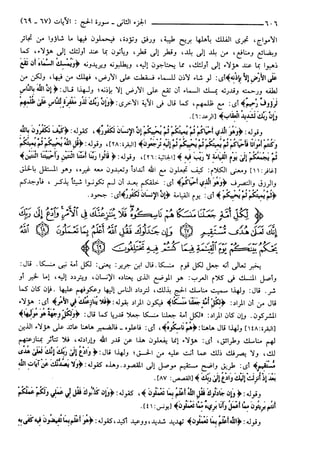 ٦٠٦ الجزء الثاني - سورة الحج: الآيات (٦٧ - ٦٩)
الأمواج، تجري الفلك بأهلها بريح طيبة، ورفق وتؤدة، فيحملون فيها ما شاؤوا من تجائر
وبضائع ومنافع، من بلد إلى بلد، وقطر إلى قطر، ويأتون بما عند أولئك إلى هؤلاء، كما
ذهبوا بما عند هؤلاء إلى أولئك، مما يحتاجون إليه، ويطلبونه ويريدونه ﴿ويمسك السماء أن تقع
على الأرض إلا بإذنه﴾ أي: لو شاء لأذن للسماء فسقطت على الأرض، فهلك من فيها، ولكن من
لطفه ورحمته وقدرته يمسك السماء أن تقع على الأرض إلا بإذنه؛ ولهذا قال: ﴿إن الله بالناس
لرءوف رحيم﴾ أي: مع ظلمهم، كما قال في الآية الأخرى: ﴿وإن ربك لذو مغفرة للناس على ظلمهم
وإن ربك لشديد العقاب﴾ [الرعد: ٦].
وقوله: ﴿وهو الذي أحياكم ثم يميتكم ثم يحييكم إن الإنسان لكفور﴾، كقوله: ﴿كيف تكفرون بالله
وكنتم أمواتا فأحياكم ثم يميتكم ثم يحييكم ثم إليه ترجعون﴾ [البقرة: ٢٨]، وقوله: ﴿قل الله يحييكم ثم يميتكم
ثم يجمعكم إلى يوم القيامة لا ريب فيه﴾ [الجاثية: ٢٦]، وقوله: ﴿قالوا ربنا أمتنا اثنتين وأحييتنا اثنتين﴾
[غافر: ١١] ومعنى الكلام: كيف تجعلون مع الله أندادا وتعبدون معه غيره، وهو المستقل بالخلق
والرزق والتصرف ﴿وهو الذي أحياكم﴾ أي: خلقكم بعد أن لم تكونوا شيئا يذكر، فأوجدكم
﴿ثم يميتكم ثم يحييكم﴾ أي: يوم القيامة ﴿إن الإنسان لكفور﴾ أي: جحود.
﴿لكل أمة جعلنا منسكا هم ناسكوه فلا ينازعنك في الأمر وادع إلى ربك
إنك لعلى هدى مستقيم وإن جادلوك فقل الله أعلم بما تعملون الله
يحكم بينكم يوم القيامة فيما كنتم فيه تختلفون﴾
يخبر تعالى أنه جعل لكل قوم منسكا، قال ابن جرير: يعني: لكل أمة نبي منسكا. قال:
وأصل المنسك في كلام العرب: هو الموضع الذي يعتاده الإنسان، ويتردد إليه، إما لخير أو
شر. قال: ولهذا سميت مناسك الحج بذلك، لترداد الناس إليها وعكوفهم عليها. فإن كان كما
قال من أن المراد: ﴿لكل أمة جعلنا منسكا﴾ فيكون المراد بقوله: ﴿فلا ينازعنك في الأمر﴾ أي: هؤلاء
المشركون. وإن كان المراد: "لكل أمة جعلنا منسكا جعلا قدريا كما قال: ﴿ولكل وجهة هو موليها﴾
[البقرة: ١٤٨] ولهذا قال هاهنا: ﴿هم ناسكوه﴾، أي: فاعلوه - فالضمير هاهنا عائد على هؤلاء الذين
لهم مناسك وطرائق، أي: هؤلاء إنما يفعلون هذا عن قدر الله وإرادته، فلا تتأثر بمنازعتهم
لك، ولا يصرفك ذلك عما أنت عليه من الحق؛ ولهذا قال: ﴿وادع إلى ربك إنك لعلى هدى
مستقيم﴾ أي: طريق واضح مستقيم موصل إلى المقصود. وهذه كقوله: ﴿ولا يصدنك عن آيات الله
بعد إذ أنزلت إليك وادع إلى ربك﴾ [القصص: ٨٧].
وقوله: ﴿وإن جادلوك فقل الله أعلم بما تعملون﴾، كقوله: ﴿وإن كذبوك فقل لي عملي ولكم عملكم
أنتم بريئون مما أعمل وأنا بريء مما تعملون﴾ [يونس: ٤١].
وقوله: ﴿الله أعلم بما تعملون﴾ تهديد شديد، ووعيد أكيد، كقوله: ﴿هو أعلم بما تفيضون فيه كفى به